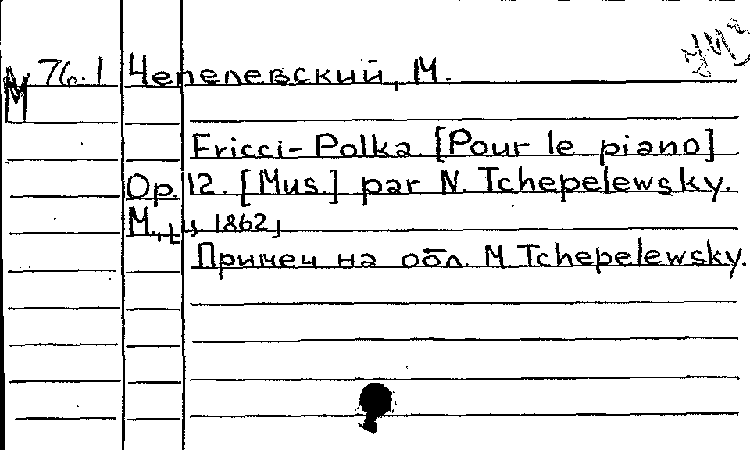 М 76.1 Чепелевский, М.
Fricci-Polka [Pour le piano]
Op. 12. [Mus.] par N. Tchepelewsky.
М., ц 1862
Примеч на обл. M Tchepelewsky.